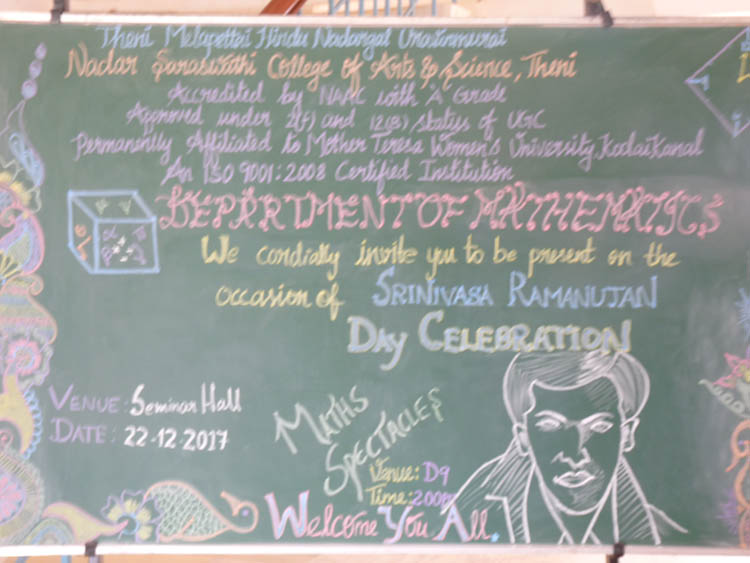 Theni Melapettai Hindu Nadargal Uravinmurai
Nadar Saraswathi College of Arts & Science, Theni
Accredited by NAAC with 'A' Grade
Approved under 2(f) and 12(B) status of UGC
Permanently Affiliated to Mother Teresa Women's University, Kodaikanal
An ISO 9001:2008 Certified Institution
DEPARTMENT OF MATHEMATICS
We cordially invite you to be present on the
occasion of SRINIVASA RAMANUJAN
DAY CELEBRATION
VENUE: Seminar Hall
DATE: 22-12-2017
MATHS
SPECTACLES
Venue: D9
Time: 2008
Welcome You All.